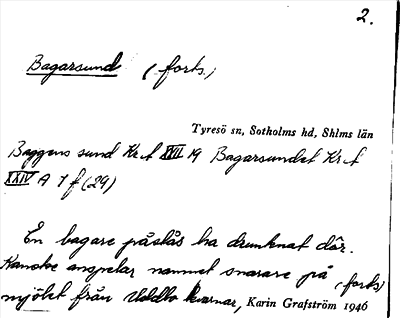 2.
Bagarsund (forts.)
Tyresö sn, Sotholms hd, Shlms län
Baggens sund Kr A XVII 19 Bagarsundet Kr A
XXIV A 7 f (29)
En bagare påstås ha drunknat där.
Kanske anspelar namnet snarare på
mjölet från Uddby kvarnar, (forts)
Karin Grafström 1946